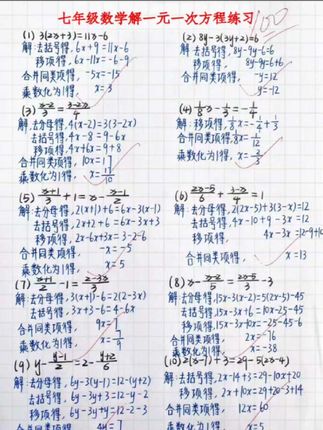 七年级数学解一元一次方程练习
100
(1) 3(2x+3)=11x-6
解:去括号得, 6x+9=11x-6
移项得, 6x-11x=-6-9
合并同类项得, -5x=-15
系数化为1得, x=3
(2) 8y-3(3y+2)=6
解:去括号得, 8y-9y-6=6
移项得, 8y-9y=6+6
合并同类项得, -y=12
y=-12
(3)
解:去分母得, 4(x-2)=3(3-2x)
去括号得, 4x-8=9-6x
移项得, 4x+6x=9+8
合并同类项得, 10x=17
系数化为1得, x=17/10
(4)
合并同类项得,
系数化为1得,
(5) (x+1)/3+1=x-(x-1)/2
解:去分母得, 2(x+1)+6=6x-3(x-1)
去括号得, 2x+2+6=6x-3x+3
移项得, 2x-6x+3x=3-2-6
合并同类项得, -x=-5
系数化为1得, x=5
(6) (2x-5)/6+(3-x)/4=1
解:去分母得, 2(2x-5)+3(3-x)=12
去括号得, 4x-10+9-3x=12
移项得, 4x-3x=12-9+10
合并同类项得, x=13
(7)
解:去分母得, 3(x+1)-6=2(2-3x)
去括号得, 3x+3-6=4-6x
合并同类项得, 9x=7
系数化为1得, x=7/9
(8)
解:去分母得, 15x-3(x-2)=5(2x-5)-45
去括号得, 15x-3x+6=10x-25-45
移项得, 15x-3x-10x=-25-45-6
合并同类项得, 2x=-76
系数化为1得, x=-38
(9) y-(y-1)/2=2-(y+2)/6
解:去分母得, 6y-3(y-1)=12-(y+2)
去括号得, 6y-3y+3=12-y-2
移项得, 6y-3y+y=12-2-3
合并同类项得, 4y=7
(10) 2(x-7)+3=29-5(2x-4)
解:去括号得, 2x-14+3=29-10x+20
移项得, 2x+10x=29+20-3+14
合并同类项得, 12x=60
系数化为1得, x=5